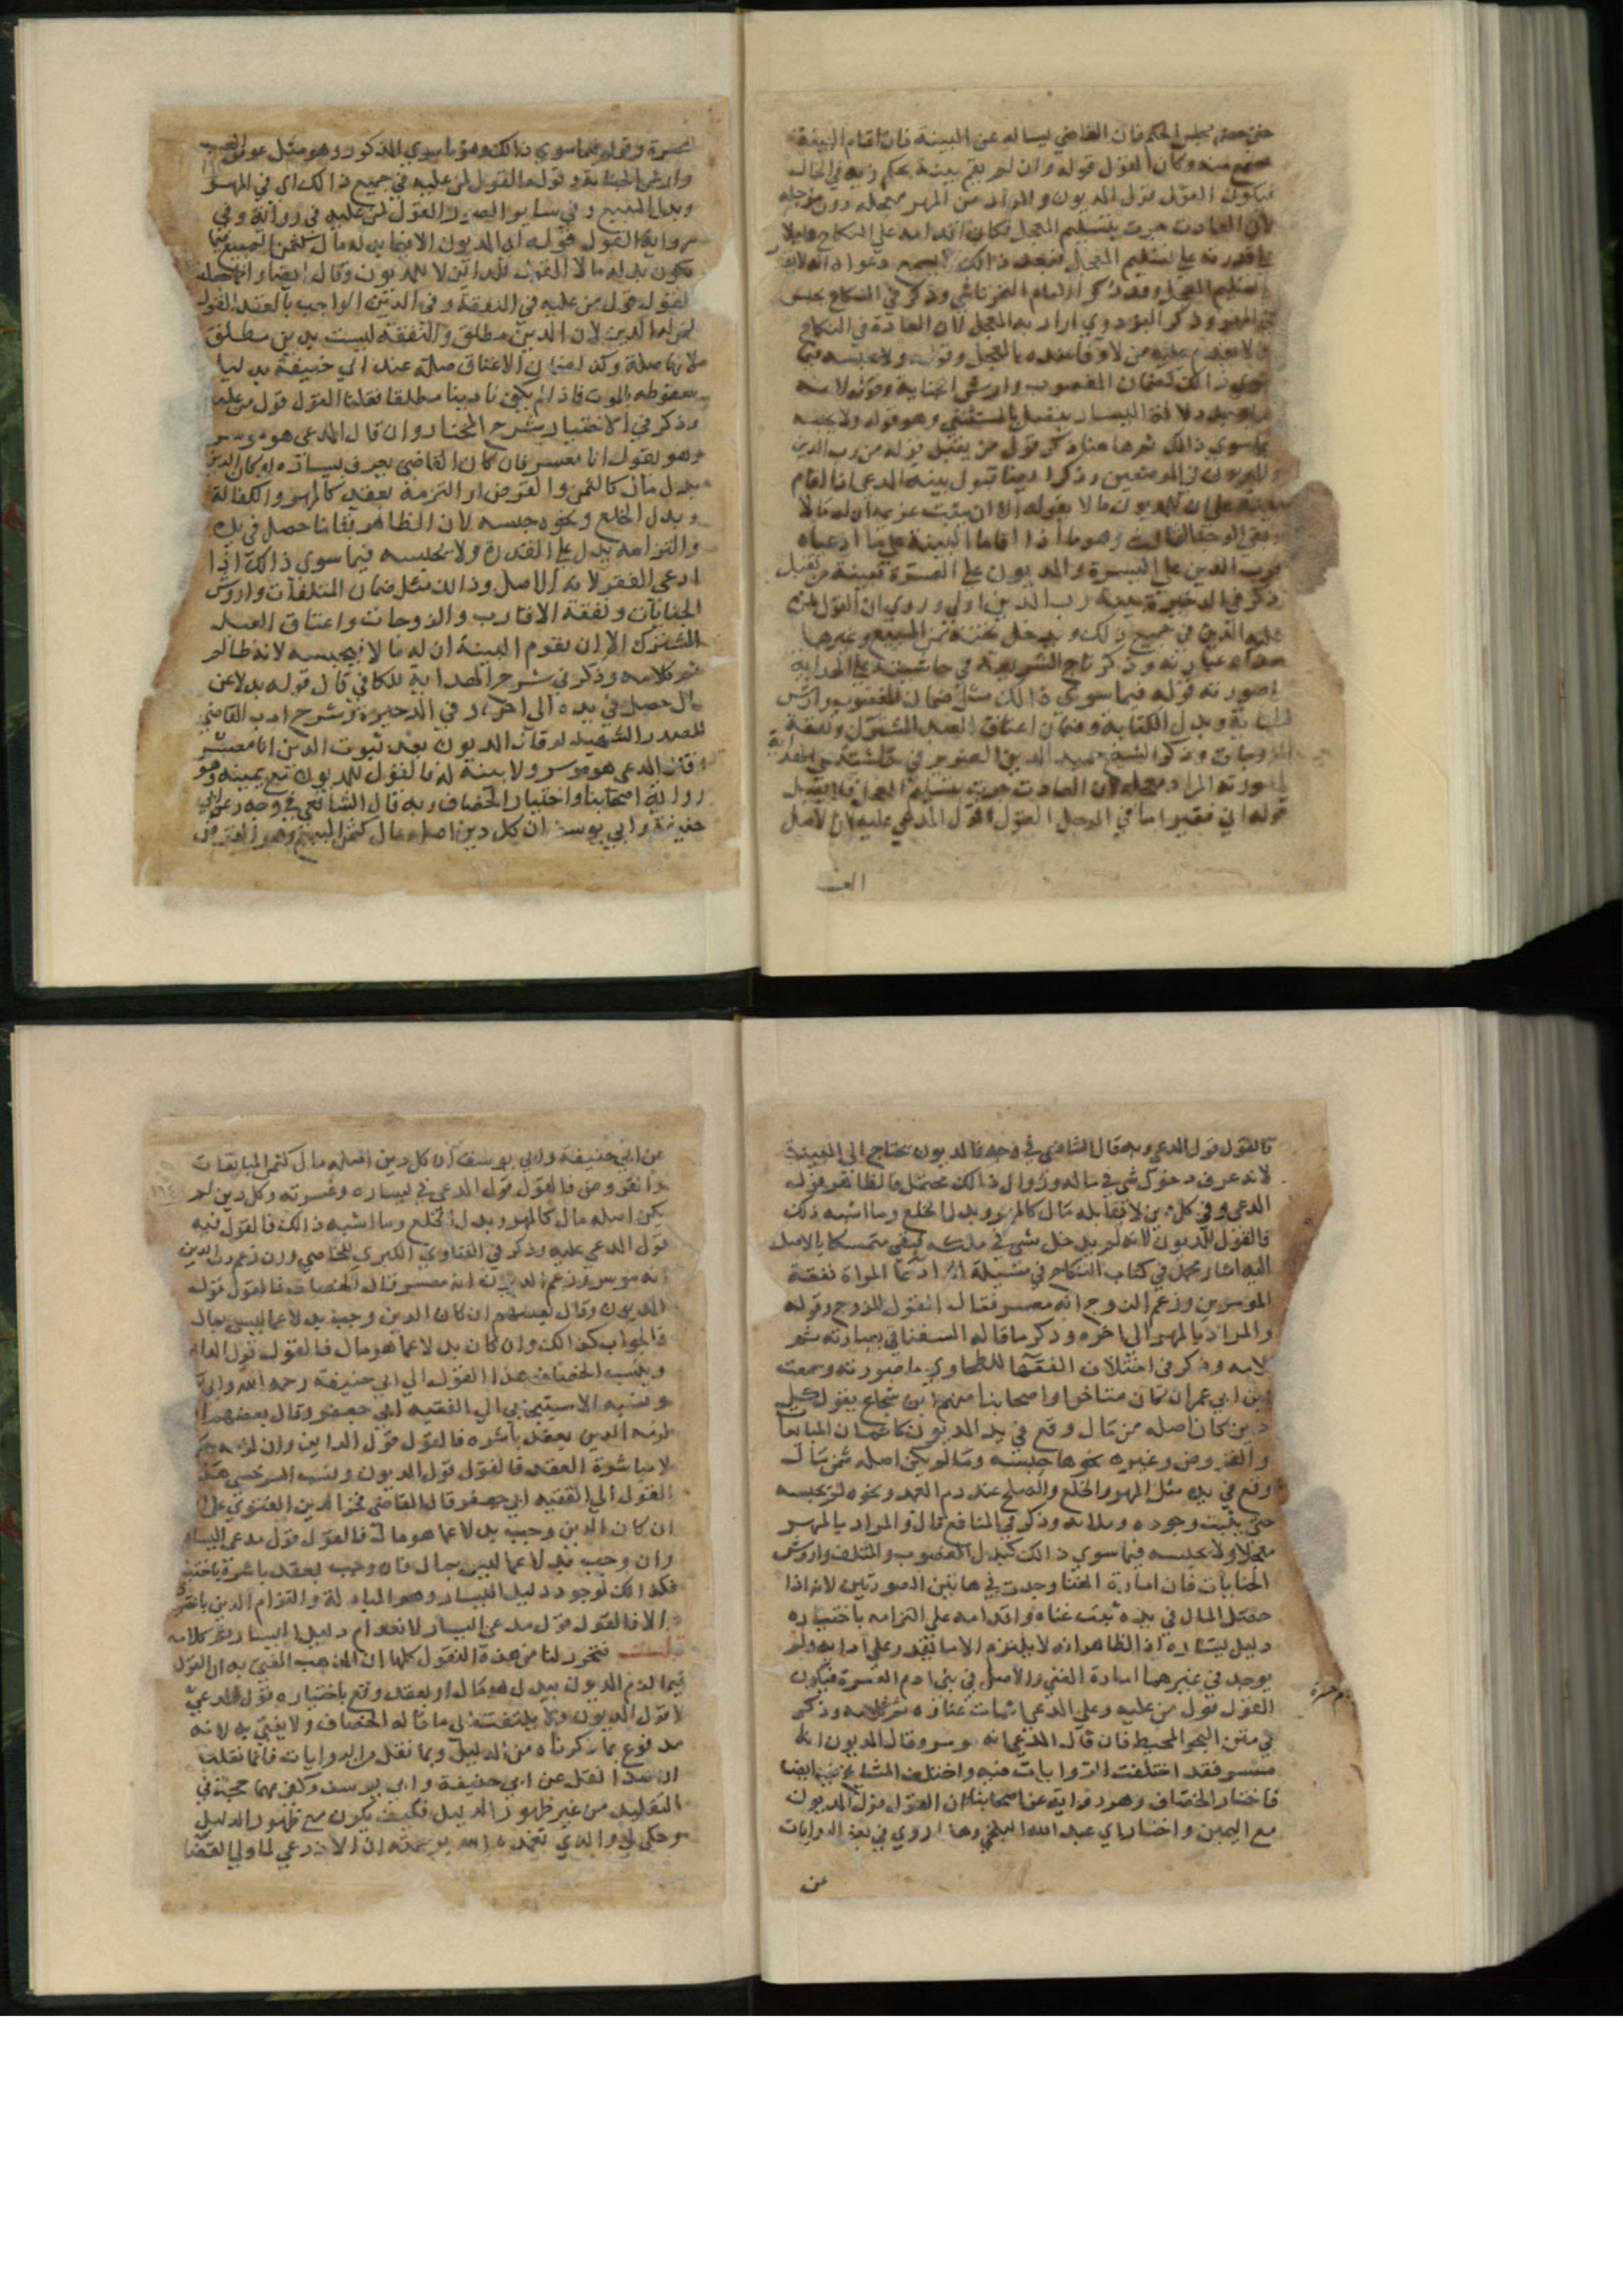 حتى حضر مجلس الحكم فان القاضي يساله عن البينة فان اقام البينة
سمع منه وكان القول قوله وان لم يقم بينة يحكم رايه في الحال
فيكون القول قول المديون والمراد من المهر معجله دون مؤجله
لان العادت جرت بتسليم المعجل فكان اقدامه علي النكاح دليلا
علي قدرته علي تسليم المعجل فبعد ذالك لا يسمع دعواه انه لا يقدر
بتسليم المعجل وقد ذكر الامام التمرتاشي وذكر في النكاح يحبس
في المهر وذكر البزدوي اراد به المعجل لان العادة في النكاح
سوي ذالك كضمان المغصوب وارش الجناية
ما سوي ذالك ثم ها هنا ذكر قول من يقبل قوله من رب الدين
والمديون في الموضعين وذكر ايضا قبول بينة المدعي اذا اقام
بينة علي ان للمديون مالا بقوله الا ان يثبت غريمه ان له مالا
وبقي الوجه الثالث وهو ما اذا اقاما البينة علي ما ادعياه
فرب الدين علي اليسرة والمديون علي العسرة فبينة من تقبل
ذكر في الذخيرة بينة رب الدين اولي وروي ان القول لمن
عليه الدين في جميع ذلك ويدخل تحته ثمن المبيع وغيرها
هذا عبارته وذكر تاج الشريعة في حاشيته علي الهداية
صورته قوله فيما سوي ذالك مثل ضمان المغصوب وارش
الجناية وبدل الكتابة وضمان اعتاق العبد المشترك ونفقة
الزوجات وذكر الشيخ حميد الدين الضرير في حاشيته علي الهداية
ما صورته المراد معجله لان العادت جرت بتسليم المعجل فلا يقبل
قوله اني فقير اما في المؤجل القول قول المدعي عليه لان الاصل
العسـ
العسرة وقوله فيما سوي ذالك وهو ما سوي المذكور وهو مثل عوض الغصب
وارش الجناية وقوله القول لمن عليه في جميع ذالك اي في المهر
وبدل المبيع وفي ساير الصور القول لمن عليه في رواية وفي
رواية القول قوله اي المديون الا فيما بدله مال كثمن المبيع فيما
يكون بدله مالا القول للداين لا للمديون وقال ايضا وانما جعل
القول قول من عليه في النفقة وفي الدين الواجب بالعقد القول
لمن له الدين لان الدين مطلق والنفقة ليست بدين مطلق
لانها صلة وكذا ضمان الاعتاق صلة عند ابي حنيفة بدليل
سقوطه بالموت فاذا لم يكن دينا مطلقا فقلنا القول قول من عليه
وذكر في الاختيار شرح المختار وان قال المدعي هو موسر
وهو يقول انا معسر فان كان القاضي يعرف يساره او كان الدين
بدل مال كالثمن والقرض او التزمه بعقد كالمهر والكفالة
وبدل الخلع ونحوه حبسه لان الظاهر بقا ما حصل في يده
والتزامه يدل علي القدرة ولا يحبسه فيما سوي ذالك اذا
ادعي الفقر لانه الاصل وذالك مثل ضمان المتلفات واروش
الجنايات ونفقة الاقارب والزوجات واعتاق العبد
المشترك الا ان يقوم البينة ان له مالا فيحبسه لانه ظالم
تم كلامه وذكر في شرح الهداية للكاكي قال قوله بدلا عن
مال حصل في يده الي اخره وفي الذخيرة وشرح ادب القاضي
للصدر الشهيد لو قال المديون بعد ثبوت الدين انا معسر
وقال المدعي هو موسر ولا بينة له فالقول للمديون مع يمينه وهو
رواية اصحابنا واختيار الخصاف وبه قال الشافعي في وجه وعن ابي
حنيفة وابي يوسف ان كل دين اصله مال كثمن المبيع وهو القرض
فالقول قول المدعي وبه قال الشافعي في وجه فالمديون يحتاج الي البينة
لانه عرف دخول شي في ماله وزوال ذالك محتمل فالظاهر قول
المدعي وفي كل دين لا مقابله مال كالمهر وبدل الخلع وما اشبه ذلك
فالقول للمديون لانه لم يدخل شي في ملكه فبقي متمسكا بالاصل
اليه اشار محمد في كتاب النكاح في مسيلة اذا ادعت المراة نفقة
الموسرين وزعم الزوج انه معسر فقال القول للزوج وقوله
والمراد بالمهر الي اخره وذكر ما قاله السغناقي بعبارته تم
كلامه وذكر في اختلاف الفقها للطحاوي ما صورته وسمعت
ابن ابي عمران كان متاخروا اصحابنا منهم ابن شجاع يقول كل
دين كان اصله من مال وقع في يد المديون كاثمان المبايعات
والقروض وغيره نحوها حبسه وما لم يكن اصله ثمن مال
وقع في يده مثل المهر والخلع والصلح عن دم العمد ونحوه لم يحبسه
حتي يثبت وجوده وملاته وذكر في المنافع قال والمراد بالمهر
معجلا ولا يحبسه فيما سوي ذالك كبدل المغصوب والمتلف واروش
الجنايات فان امارة الغنا وجدت في هاتين الصورتين لانه اذا
حصل المال في يده ثبت غناه واقدامه علي التزامه باختياره
دليل يساره اذ الظاهر انه لا يلتزم الا ما يقدر علي ادايه ولم
يوجد في غيرهما امارة الغني والاصل في بني ادم العسرة فيكون
القول قول من عليه وعلي المدعي اثبات غناره تم كلامه وذكر
في متن البحر المحيط فان قال المدعي انه موسر وقال المديون انه
معسر فقد اختلفت الروايات فيه واختلف المشايخ فيه ايضا
فاختار الخصاف وهو رواية عن اصحابنا ان القول قول المديون
مع اليمين واختار ابي عبد الله البلخي وهذا روي في بعض الروايات
عن
عن ابي حنيفة وابي يوسف ان كل دين اصله مال كثمن المبايعات
والقروض فالقول قول المدعي في يساره وعسرته وكل دين لم
يكن اصله مال كالمهر وبدل الخلع وما اشبه ذالك فالقول فيه
قول المدعي عليه وذكر في الفتاوي الكبري للخاصي وان زعم رب الدين
انه موسر وزعم المديون انه معسر قال الخصاف فالقول قول
المديون وقال بعضهم ان كان الدين وجب بدلا عما ليس بمال
فالجواب كذالك وان كان بدلا عما هو مال فالقول قول الداين
وينسب الخصاف هذا القول الي ابي حنيفة رحمه الله وابي
ونسبه الاسبيجابي الي الفقيه ابي جعفر وقال بعضهم ان
لزمه الدين بعقد باشره فالقول قول الداين وان لزمه حكم
لا مباشرة العقد فالقول قول المديون ونسب السرخسي هذا
القول الي الفقيه ابي جعفر قال القاضي فخر الدين الفتوي علي
ان كان الدين وجب بدلا عما هو مال فالقول قول مدعي اليسار
وان وجب بدلا عما ليس بمال فان وجب بعقد باشره باختياره
فكذالك لوجود دليل اليسار وهو المبادلة والتزام الدين باختياره
والا فالقول قول مدعي اليسار لانعدام دليل اليسار تم كلامه
قلت فتحرر لنا من هذه النقول كلها ان المذهب المفتي به ان القول
فيما لزم المديون ببدل هو مال او بعقد وقع باختياره قول المدعي
لا قول المديون ولا يلتفت الي ما قاله الخصاف ولا يفتي به لانه
مدفوع بما ذكرناه من الدليل وبما نقل من الروايات فانما نقلت
ان هذا نقل عن ابي حنيفة وابي يوسف وكفي بهما حجة في
التقليد من غير ظهور الدليل فكيف يكون مع ظهور الدليل
وحكي لي والدي تغمده الله برحمته ان الاذرعي لما ولي القضا